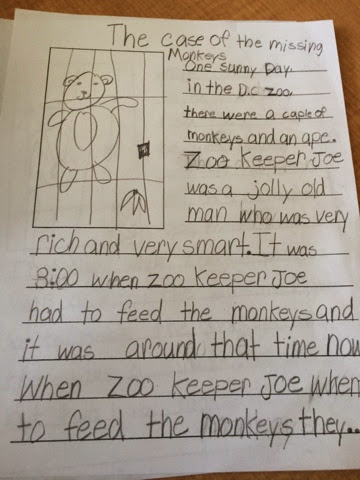 The case of the missing
Monkeys
One sunny Day
in the D.C zoo
there were a caple of
monkeys and an ape.
Zoo Keeper Joe
was a jolly old
man who was very
rich and very smart. It was
8:00 when zoo keeper Joe
had to feed the monkeys and
it was around that time now
When zoo keeper Joe when
to feed the monkeys they..